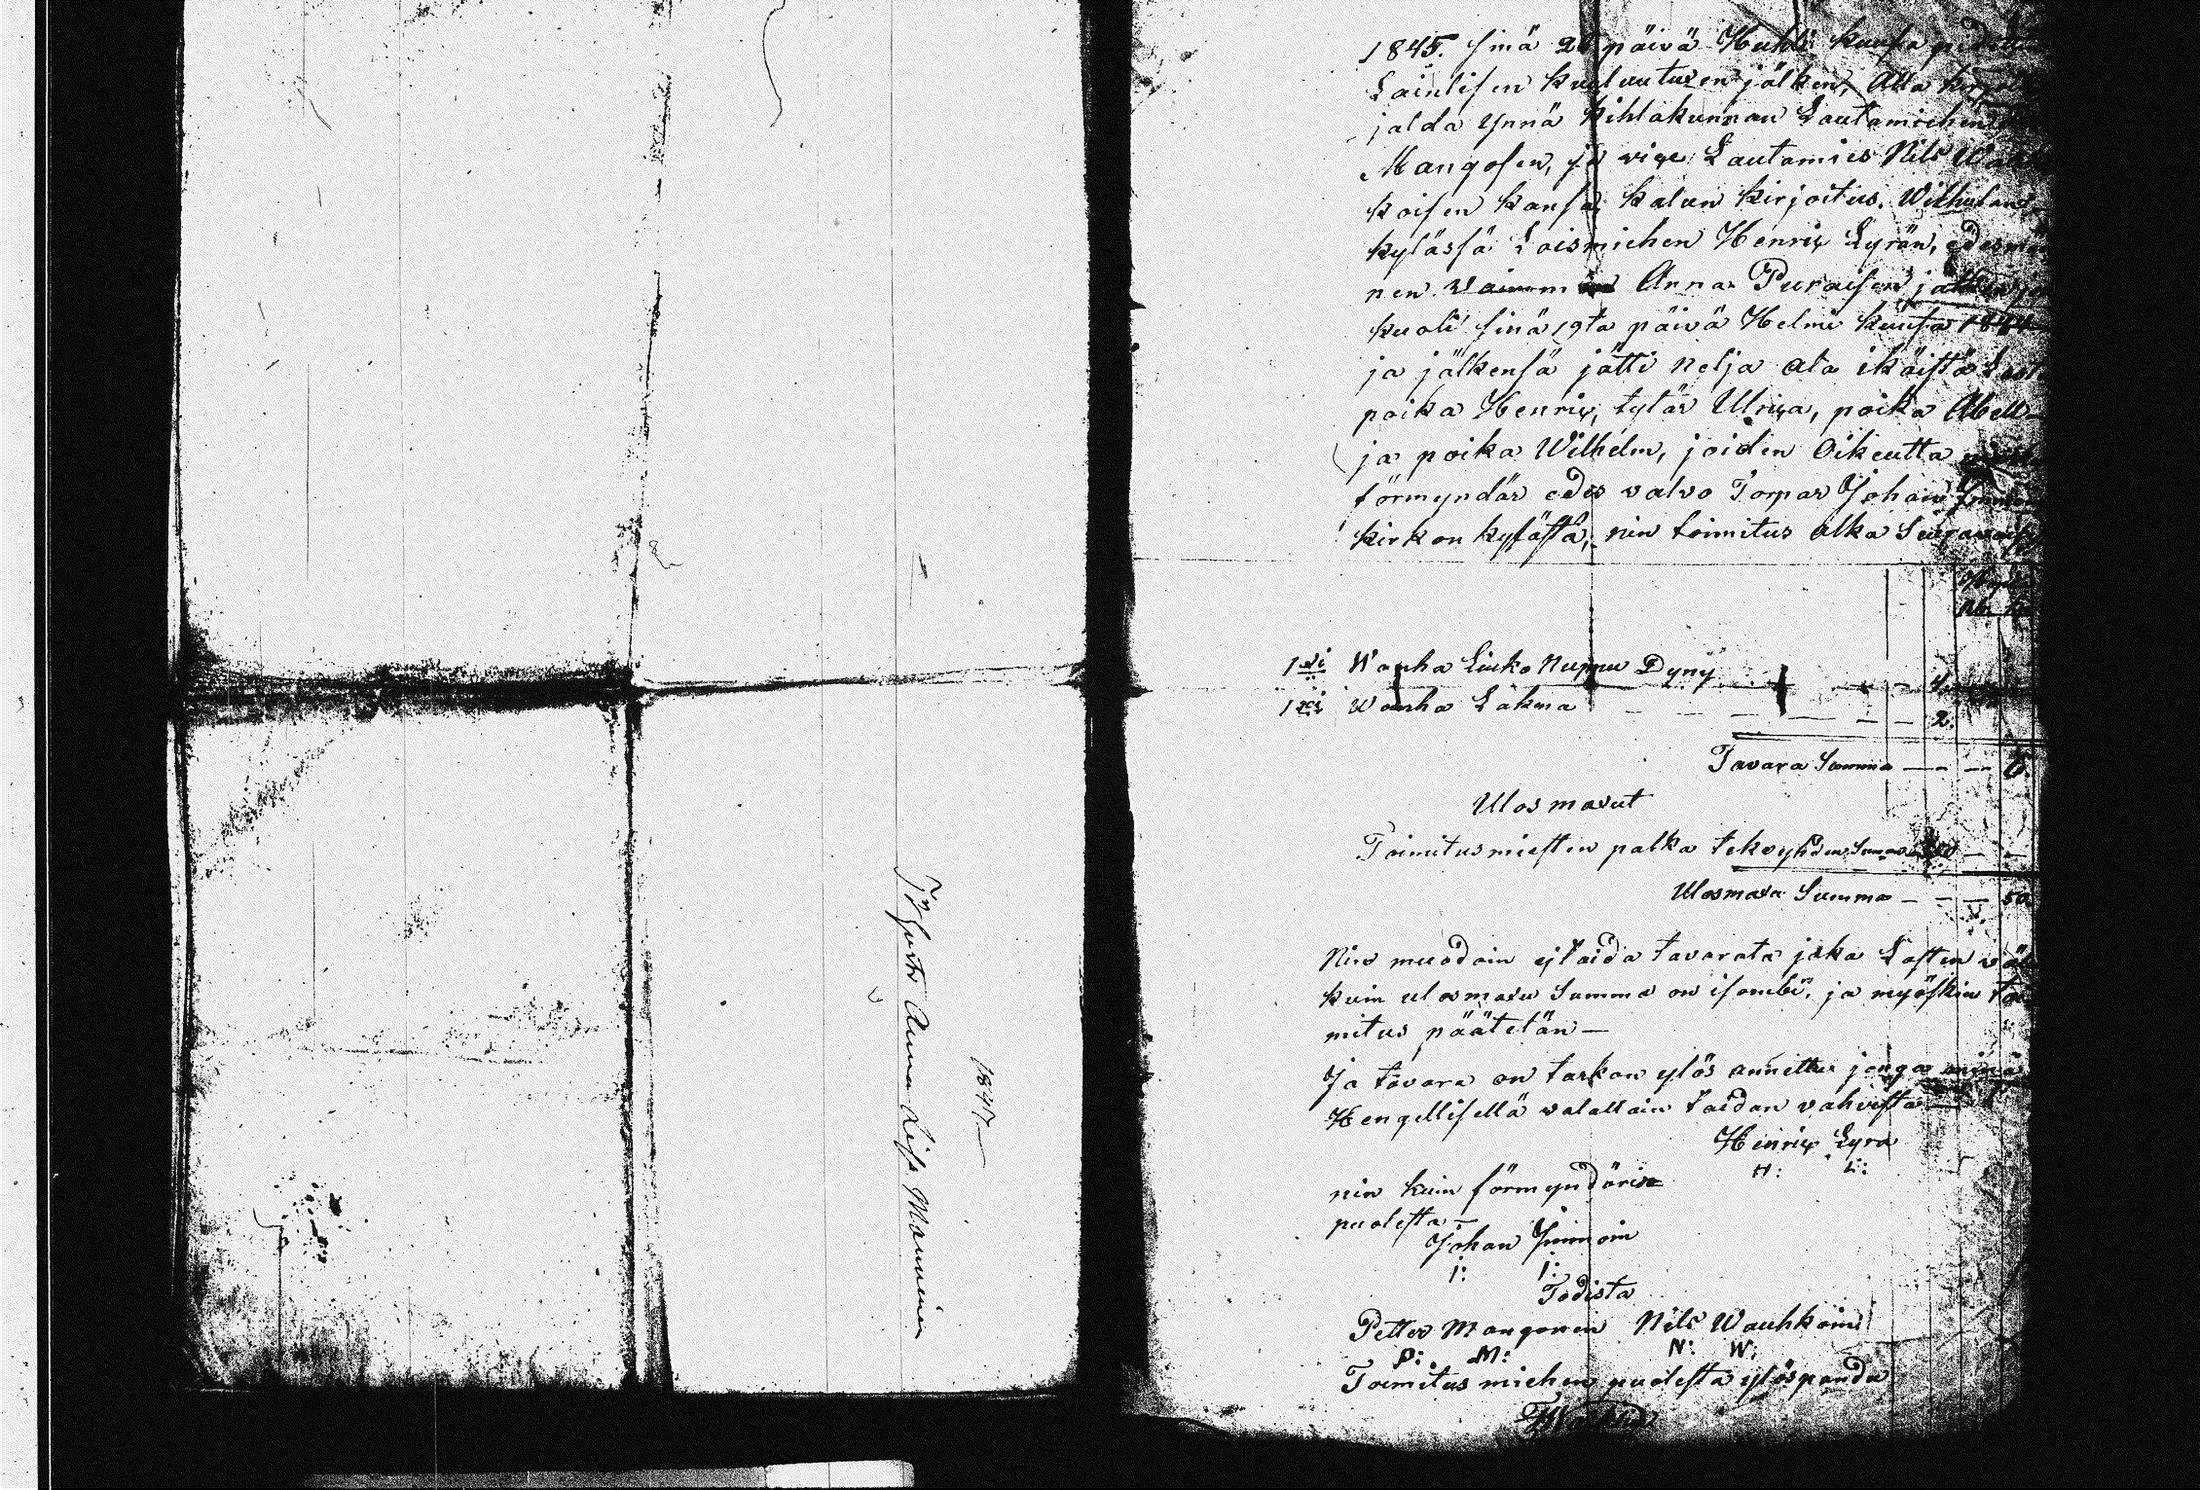 Jtj Hustr Anna Lisa Manninen
1847.—
1845. sinä 20 päivä Huhti kuusa
Lainlisen kuuluutuxen jälken, Alla
jalda ynnä kihlakunnan Lautamiehen
Mangosen, ja vice Lautamies Nils
koisen kansa, kalun kirjoitus,
kylässä Loismiehen Henrix Lyrän, edesmä
nen vaimm Anna Puraisen jälken
kuoli sinä 19ta päivä Helmi kuusa 1844
ja jälkensä jätti nelja ala ikäistä Last
poika Henrix, tytär Ulrixa, poika Abell
ja poika Wilhelm, joiden Oikeutta
förmyndär edes valvo Torpar Johan
kirkon kylästä, nin toimitus alka
1xi Wanha Liuko Nuppu Dyny
1xi Wanha Lakena — — — 2.
Tavara Summa — — — 6
Ulosmaxut
Toimitusmiesten palka tekeyhden Summan
Ulosmaxu Summa — — — 50
Nin muodoin ej taida tavarata jaka Lasten
kuin ulosmaxu Summa on isombi, ja myöskin toi
mitus päätetän —
Ja tavara on tarkon ylös annettu jonga minä
Hengellisellä valallain taidan vahvista —
Henrix Lyra
H: L:
nin kuin förmyndärin
puolesta —
Johan Jmmoin
J: J:
Todista
Petter Mangonen Nils Wauhkoin
P: M: N: W:
Toimitus miehen puolesta ylöspandu